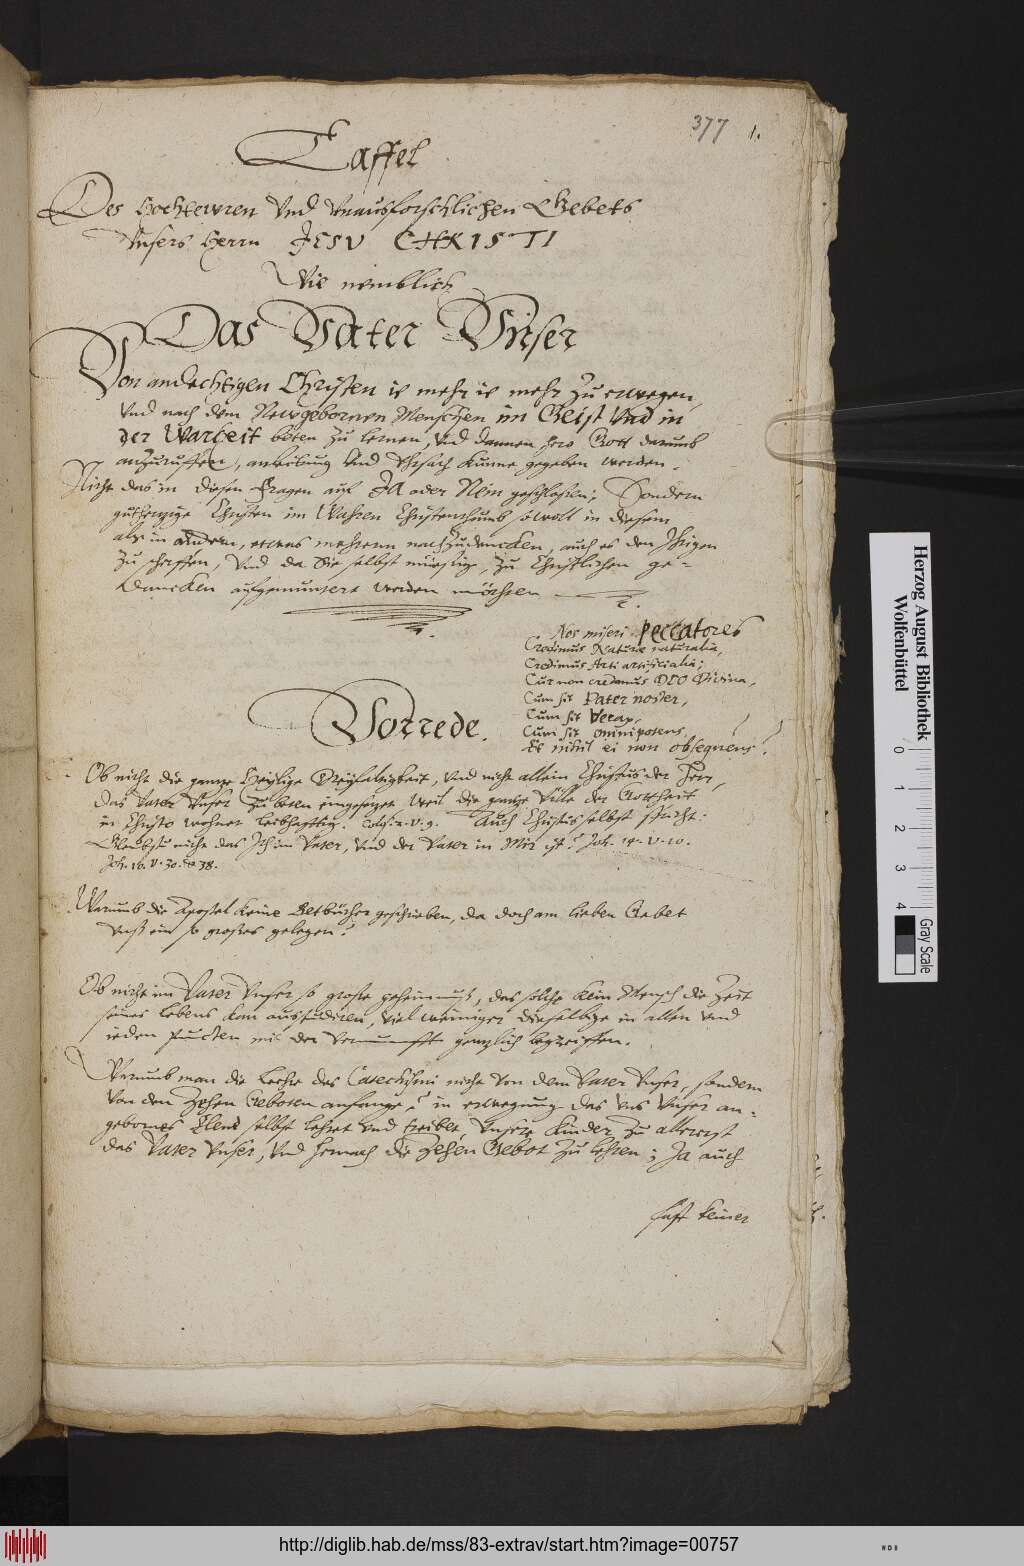 377 1.
Taffel
Des Hochtewren Vnd Vnausforschlichen Gebets
Vnsers Herrn JESV CHRISTI
Wie nemblich
Das Vater Vnser
Von andechtigen Christen ie mehr ie mehr Zu erwegen,
Vnd nach dem Newgebornen Menschen im Geist Vnd in
der Warheit beten Zu lernen, Vnd dannen hero Gott darumb
anzuruffen, anleitung Vnd Vhrsach kunne gegeben werden.
Nicht das in diesen Fragen auf JA oder Nein geschlossen; Sondern
guthertzige Christen im Wahren Christenthumb sowoll in diesem
als in andern, etwas mehrern nachZudencken, auch es den Ihrigen
Zu schaffen, Vnd da Sie selbst müessig, Zu Christlichen ge-
dancken aufgemuntert werden möchten
Nos miseri peccatores
Credimus Naturæ naturalia,
Credimus Arti artificialia;
Cur non credamus DEO Divina,
Cum sit Pater noster,
Cum sit Verax,
Cum sit omnipotens,
Et nihil ei non obsequens?
Vorrede.
Ob nicht die gantze Heylige Dreyfaltigkeit, Vnd nicht allein Christus der Herr,
das Vater Vnser Zu beten eingesetzet Weil die gantze Fülle der Gottheit
in Christo wohnet leibhafftig. Col: 2. v. 9. Auch Christus selbst spricht:
Gleubstu nicht das Ich im Vater, Vnd der Vater in Mir ist? Joh. 14. v. 10.
Joh. 10. v. 30. & 38.
Warumb die Apostel keine Betbücher geschrieben, da doch am lieben Gebet
Vnß ein so großes gelegen?
Ob nicht im Vater Vnser so große geheimnuß, das solche kein Mensch die Zeit
seines lebens kan ausstudiren, viel weiniger dieselbige in allen Vnd
ieden puncten mit der Vernunfft gentzlich begreiffen.
Warumb man die Lehre des Catechismi nicht Von dem Vater Vnser, sondern
Von den Zehen Geboten anfange? in erwegung das Vns Vnser an-
gebornes Elend selbst lehret Vnd treibet, Vnsere Kinder Zu allererst
das Vater Vnser, Vnd hernach die Zehen Gebot Zu lehren; Ja auch
fast keiner
Herzog August Bibliothek
Wolfenbüttel
0 1 2 3 4
Gray Scale
http://diglib.hab.de/mss/83-extrav/start.htm?image=00757